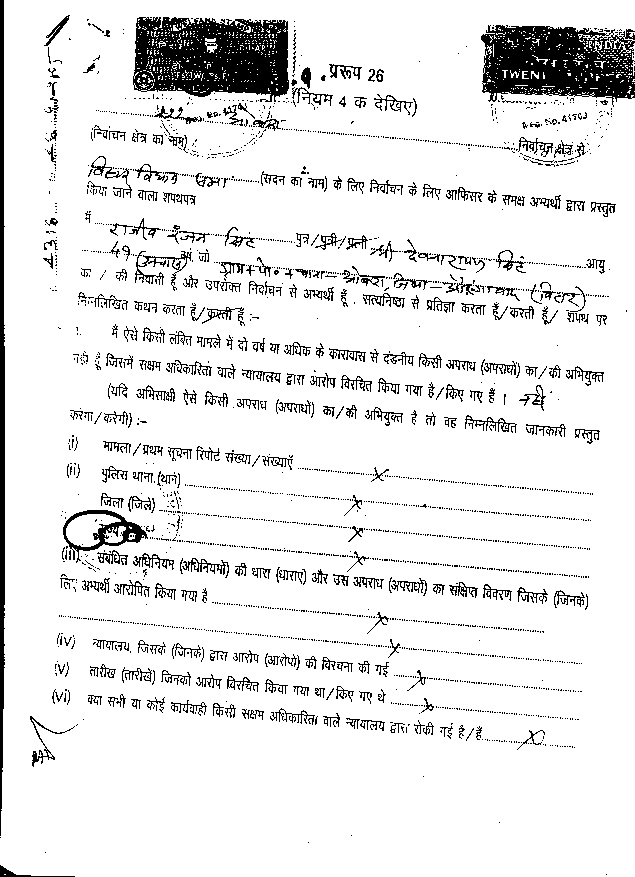 INDIA
TWEN
प्ररूप 26
(नियम 4 क देखिए)
REG. NO. 41703
(निर्वाचन क्षेत्र का नाम)
निर्वाचन क्षेत्र से
बिहार विधान सभा (सदन का नाम) के लिए निर्वाचन के लिए आफिसर के समक्ष अभ्यर्थी द्वारा प्रस्तुत
किया जाने वाला शपथपत्र
मैं राजीव रंजन सिंह पुत्र/पुत्री/पत्नी श्री देवनारायण सिंह आयु
49 वर्ष, जो ग्राम+पो०+थाना-ओबरा, जिला-औरंगाबाद (बिहार)
का / की निवासी हूँ और उपरोक्त निर्वाचन से अभ्यर्थी हूँ, सत्यनिष्ठा से प्रतिज्ञा करता हूँ/करती हूँ/ शपथ पर
निम्नलिखित कथन करता हूँ/करती हूँ :-
1. मैं ऐसे किसी लंबित मामले में दो वर्ष या अधिक के कारावास से दंडनीय किसी अपराध (अपराधों) का/की अभियुक्त
नहीं हूँ जिसमें सक्षम अधिकारिता वाले न्यायालय द्वारा आरोप विरचित किया गया है/किए गए हैं । नहीं
(यदि अभिसाक्षी ऐसे किसी अपराध (अपराधों) का/की अभियुक्त है तो वह निम्नलिखित जानकारी प्रस्तुत
करेगा/करेगी) :-
(i) मामला/प्रथम सूचना रिपोर्ट संख्या/संख्याएँ X
(ii) पुलिस थाना (थाने) X
जिला (जिले) X
राज्य X
(iii) संबंधित अधिनियम (अधिनियमों) की धारा (धाराएं) और उस अपराध (अपराधों) का संक्षिप्त विवरण जिसके (जिनके)
लिए अभ्यर्थी आरोपित किया गया है X
X
(iv) न्यायालय, जिसके (जिनके) द्वारा आरोप (आरोपों) की विरचना की गई X
(v) तारीख (तारीखें) जिनको आरोप विरचित किया गया था/किए गए थे X
(vi) क्या सभी या कोई कार्यवाही किसी सक्षम अधिकारिता वाले न्यायालय द्वारा रोकी गई है/हैं X